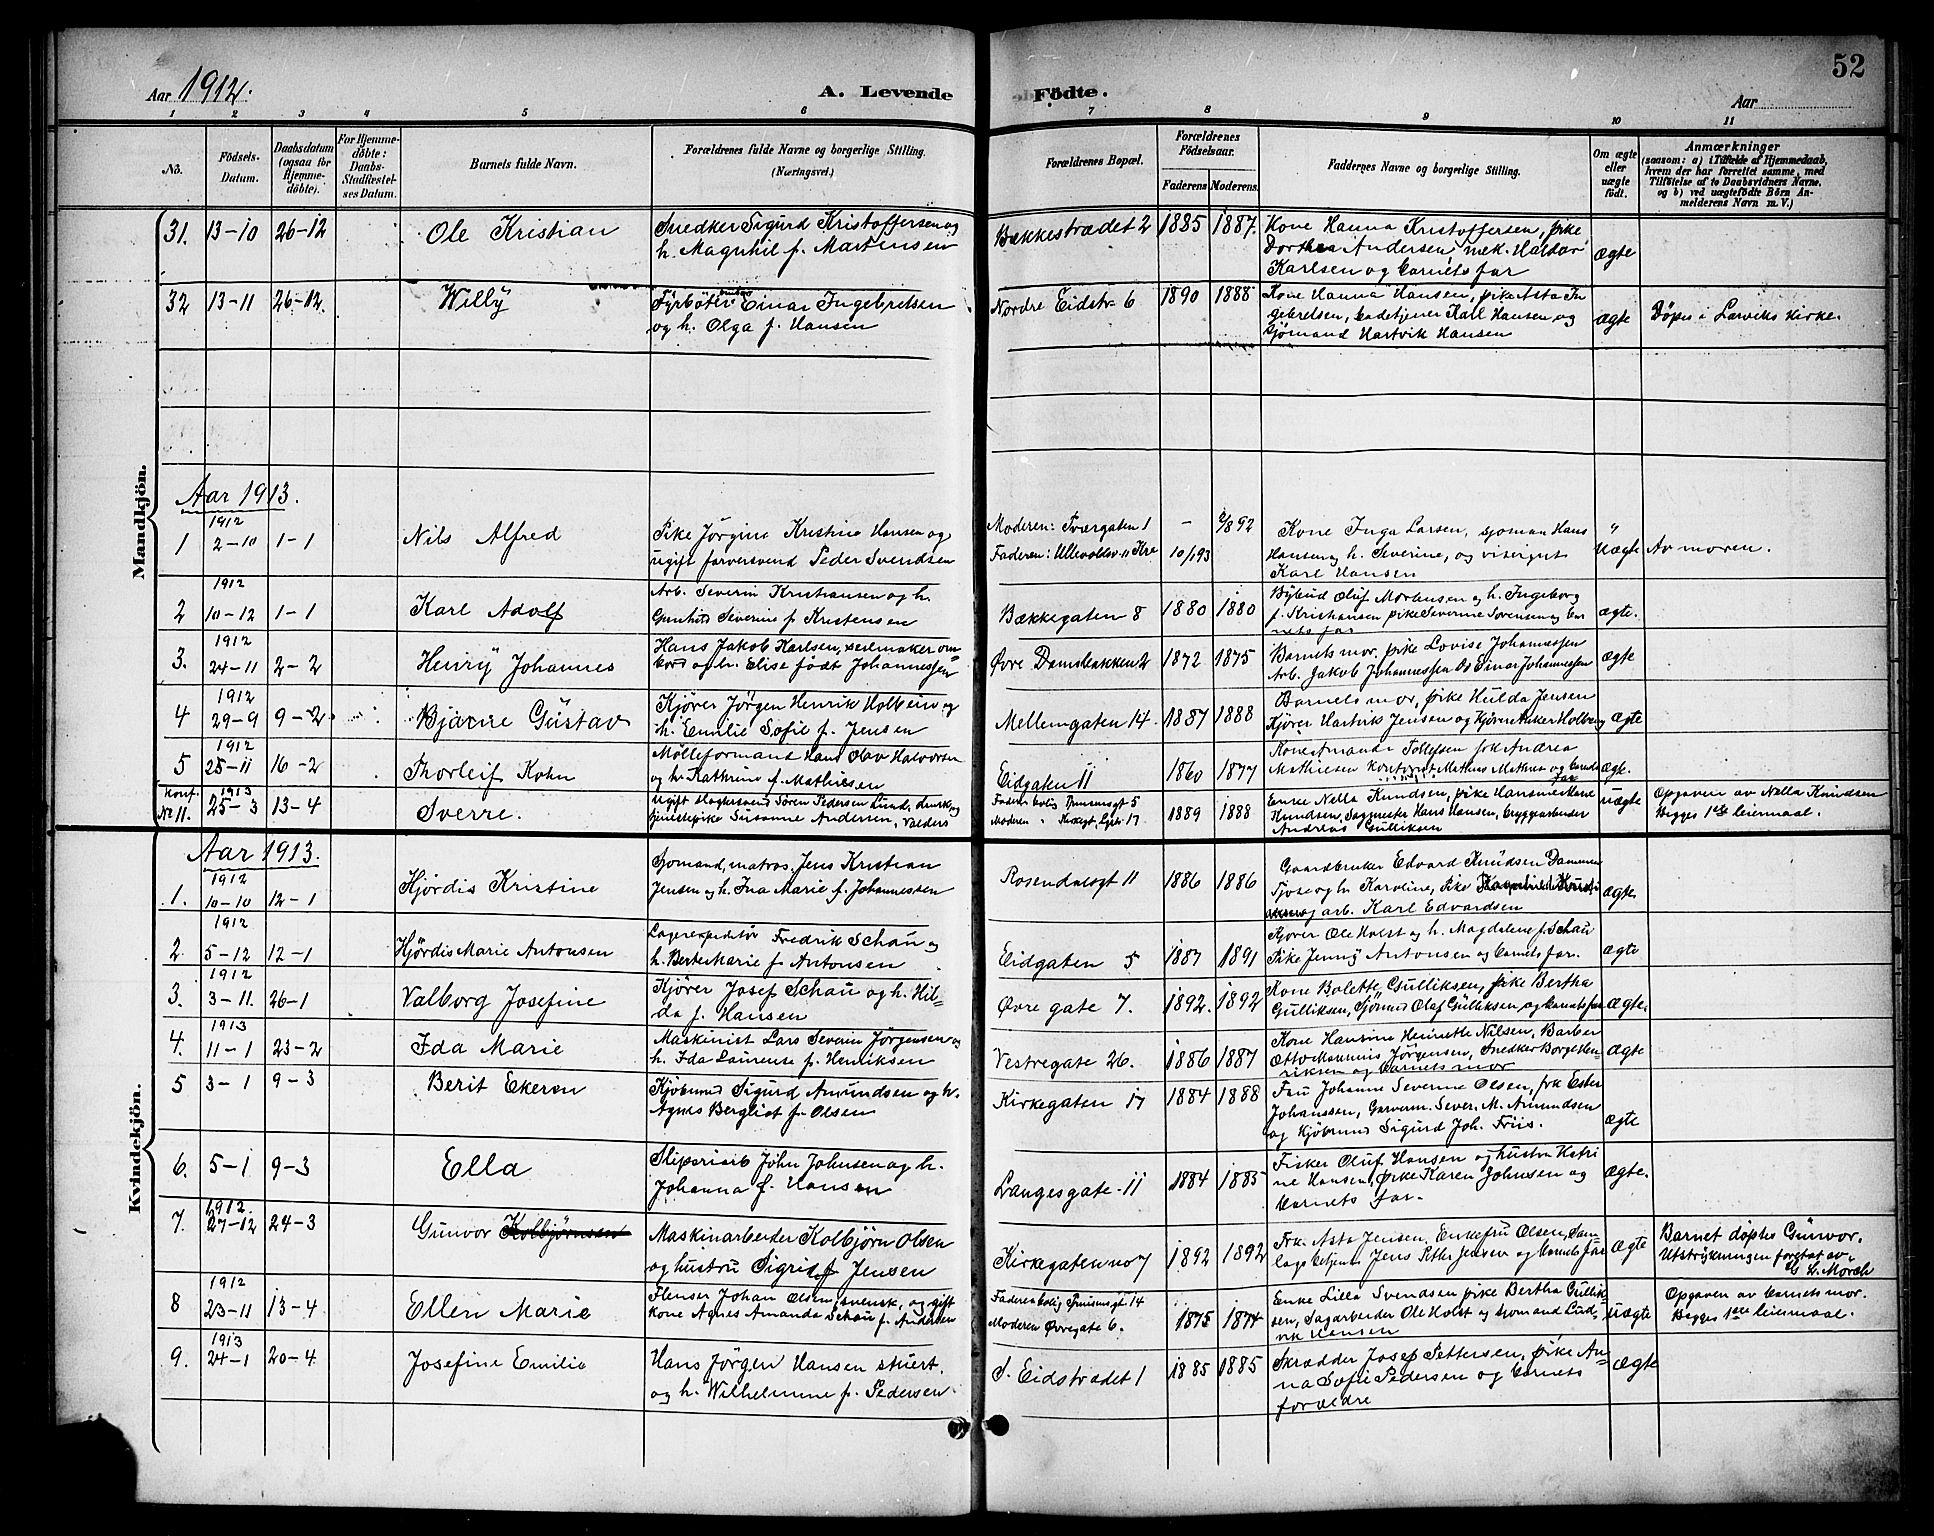 52
Aar 1912.
A. Levende Födte.
Aar
1 2 3 4 5 6 7 8 9 10 11
No.
Födsels-Datum.
Daabsdatum (ogsaa for Hjemme-döbte).
For Hjemme-döbte: Daabs-Stadfæstel-ses Datum.
Barnets fulde Navn.
Forældrenes fulde Navne og borgerlige Stilling. (Næringsvei.)
Forældrenes Bopæl.
Forældrenes Födselsaar.
Faderens. Moderens.
Faddernes Navne og borgerlige Stilling.
Om ægte eller uægte födt.
Anmærkninger
(saasom: a) i Tilfælde af Hjemmedaab, hvem der har forrettet samme, med Tilföielse af to Daabsvidners Navne, og b) ved uægtefödte Börn An-melderens Navn m. V.)
Mandkjön.
31. 13-10 26-12 Ole Kristian
Snedker Sigurd Kristoffersen og
h. Magnhil f. Martinsen
Bækkestrædet 2 1885 1887.
Kone Hanna Kristoffersen, pike
Dorthea Andersen, mek. Haldor
Karlsen og barnets far
ægte
32 13-11 26-12. Willy
Fyrböter Einar Ingebretsen
og h. Olga f. Hansen
Nordre Eidstr. 6 1890 1888
Kone Hanna Hansen, pike Asta In
gebretsen, badetjener Karl Hansen og
sjømand Hartvik Hansen
ægte
Döpt i Larviks kirke.
Aar 1913.
1912
1 2-10 1-1 Nils Alfred
Pike Jörgine Kristine Hansen og
ugift farversvend Peder Svendsen
Moderen: Tværgaten 1 - 2/892
Faderen: Ullevoldsv. 11 Kra 10/193
Kone Inga Larsen, sjöman Hans
Hansen og h. Severine, og visergut
Karl Hansen
uægte Av moren.
1912
2 10-12 1-1 Karl Adolf
Arb. Severin Kristiansen og h.
Gunhild Severine f. Kristensen
Bækkegaten 8 1880 1880
Bybud Oluf Mortensen og h. Ingeborg
f. Kristiansen pike Severine Sörensen og bar
nets far
ægte.
1912
3. 24-11 2-2 Henry Johannes
Hans Jakob Karlsen, seilmaker om
bord og h. Elise födt Johannessen
Øvre Damsbakken 2 1872 1875
Barnets mor, pike Lovise Johannessen
Arb. Jakob Johannessen Og Einar Johannessen
ægte
1912
4 29-9 9-2. Bjarne Gustav
Kjörer Jörgen Henrik Holberg og
h. Emilie Sofie f. Jensen
Mellemgaten 14. 1887 1888
Barnets mor, pike Hulda Jensen
Kjörer Hartvik Jensen og Kjörer Anker Holberg
ægte
1912
5 25-11 16-2 Thorleif Kohn
Mölleformand Hans Olav Halvorsen
og h. Kathrine f. Mathiesen
Eidgaten 11 1860 1877
Kone Amanda Tollefsen frk Andrea
Mathiesen kontorist Mathias Mathies og barnets
far
ægte.
Konf. No 11. 1913
25-3 13-4 Sverre.
ugift slagtersvend Sören Pedersen Lund, dansk og
tjenestepike Susanne Andersen, Valders
1889 1888
Enke Nella Knudsen, pike Hansine Marie
Knudsen, Sagmester Hans Hansen, bryggearbeider
Andreas Gulliksen
uægte
Opgaven av Nella Knudsen
Begges 1ste leiermaal.
Kvindekjön.
Aar 1913.
1912
1. 10-10 12-1 Hjördis Kristine
Sjomand, matros. Jens Kristian
Jensen og h. Ina Marie f. Johannessen
Rosendalsgt 11 1886 1886
Gaardbruker Edvard Knudsen Dammen
Tjose og h. Karoline, Pike
og arb. Karl Edvardsen
ægte.
1912
2. 5-12 12-1 Hjördis Marie Antonsen
Lagerexpeditör Fredrik Schau og
h. Berte Marie f. Antonsen
Eidgaten 5 1887 1891
Kjörer Ole Holst og h. Magdalene f. Schau
Pike Jenny Antonsen og barnets far.
ægte
1912
3. 3-11. 26-1 Valborg Josefine
Kjörer Josef Schau og h. Hil-
da f. Hansen
Øvre gate 7. 1892. 1892
Kone Bolette Gulliksen, pike Bertha
Gulliksen, Sjömand Olaf Gulliksen, og barnets far
ægte.
1913
4. 11-1 23-2 Ida Marie
Maskinist Lars Severin Jörgensen og
h. Ida Laurense f. Henriksen
Vestregate 26. 1886 1887
Kone Hansine Henriette Nilsen, Barber
Otto Magnus Jörgensen, Snedker Borge Hen
riksen og barnets mor
ægte
5 3-1 9-3 Berit Ekeren
Kjöbmd Sigurd Amundsen og h.
Agnes Bergliot f. Olsen
Kirkegaten 17 1884 1888
Fru Johanne Severine Olsen, frk Ester
Johanssen, Garverm. Sever. M. Amundsen
og Kjöbmd Sigurd Joh. Friis.
ægte
6. 5-1 9-3 Ella
Sliperiarb John Johnsen og h.
Johanna f. Hansen
Langesgate 11 1884 1885
Fisker Oluf Hansen og hustru Katri
ne Hansen, pike Karen Johnsen og
barnets far.
ægte.
1912.
7. 27-12 24-3 Gunvor Kolbjörnsen
Maskinarbeider Kolbjörn Olsen
og hustru Sigrid f Jensen
Kirkegaten no 7 1892 1892
Frk. Asta Jensen, Enkefru Olsen, Sam-
lagsbetjent Jens Peter Jensen og barnets far
ægte
Barnet döptes Gunvor.
Utstrykningen foretat av
L. Mörch
1912
8 23-11 13-4 Ellen Marie
Flenser Johan Olsen, svensk, og gift
kone Agnes Amanda Schau f. Andersen
Faderen bolig 14
Moderen Øvregate 6. 1875 1874
Enke Lilla Svendsen pike Bertha Gullik
sen, Sagarbeider Ole Holst og sjömand Lud-
vik Hansen
uægte
Opgaven av barnets mor.
Begges 1ste leiermaal.
1913
9. 24-1 20-4 Josefine Emilie
Hans Jörgen Hansen stuert.
og h. Wilhelmine f. Pedersen.
S. Eidstrædet 1 1885 1885
Skrædder Josef Pettersen, pike An-
na Sofie Pedersen og barnets
forældre
ægte